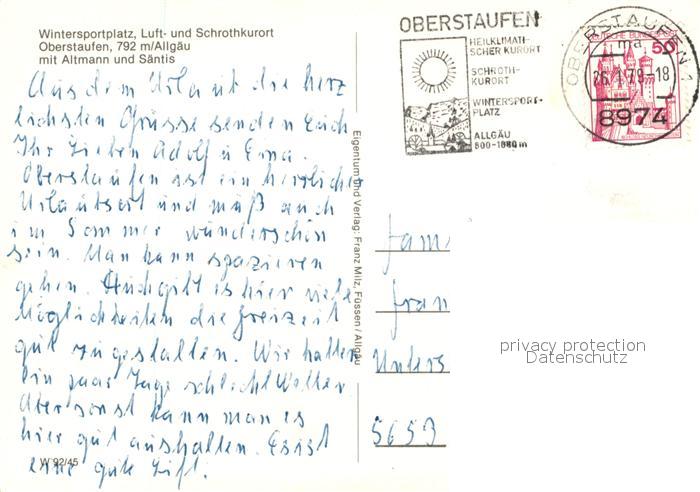 Wintersportplatz, Luft- und Schrothkurort
Oberstaufen, 792 m/Allgäu
mit Altmann und Säntis
Aus dem Urlaub die herz
lichsten Grüsse senden Euch
Ihr Lieben Adolf u Erna.
Oberstaufen ist ein herrlicher
Urlaubsort und muß auch
im Sommer wunderschön
sein. Man kann spazieren
gehen. Auch gibt es hier viele
Möglichkeiten die Freizeit
gut zu gestalten. Wir hatten
ein paar Tage schlecht Wetter
Aber sonst kann man es
hier gut aushalten. Es ist
eine gute Luft.
W 92/45
Eigentum und Verlag: Franz Milz, Füssen/Allgäu
OBERSTAUFEN
HEILKLIMATI-
SCHER KURORT
SCHROTH-
KURORT
WINTERSPORT-
PLATZ
ALLGÄU
800-1880 m
OBERSTAUFEN 1
ma
26.1.79-18
8974
DEUTSCHE BUNDESPOST
50
Fam.
Fran
Unters
5653
privacy protection
Datenschutz